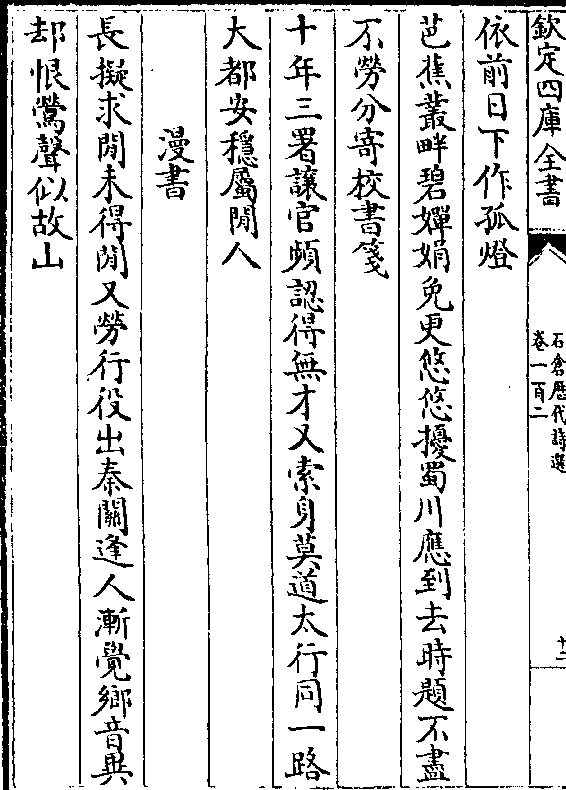 欽定四庫全書
石倉歴代詩選
卷一百二
十二
依前日下作孤燈
芭蕉叢畔碧嬋娟免更悠悠擾蜀川應到去時題不盡
不勞分寄校書箋
十年三署讓官頻認得無才又索身莫道太行同一路
大都安穩屬閒人
漫書
長擬求閒未得閒又勞行役出秦關逢人漸覺鄉音異
却恨鶯聲似故山